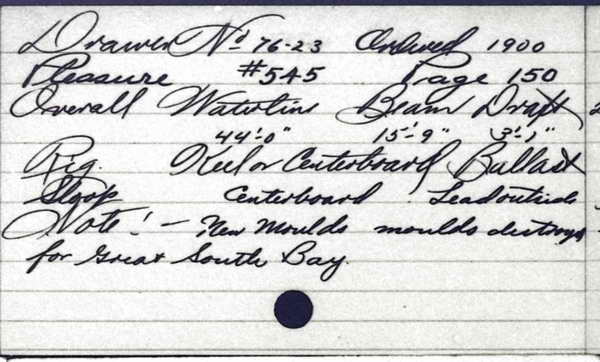 Drawer No 76-23 Ordered 1900
Pleasure #545 Page 150
Overall Waterline Beam Draft
44'-0" 15'-9" 3'-1"
Rig. Keel or Centerboard Ballast
Sloop Centerboard. Lead outside
Note! - New Moulds moulds destroyed
for Great South Bay.